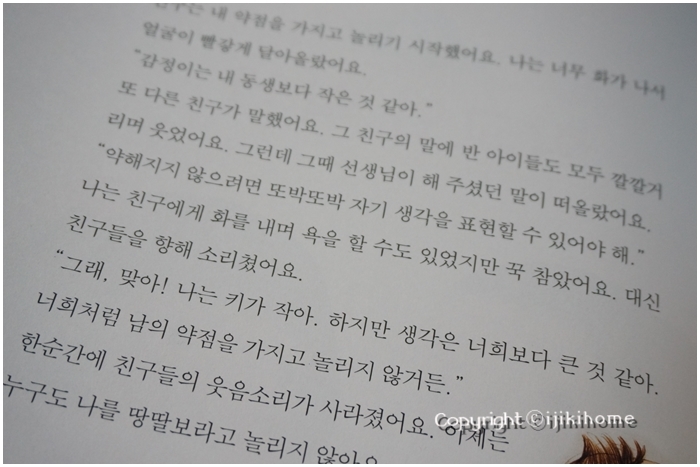 친구는 내 약점을 가지고 놀리기 시작했어요. 나는 너무 화가 나서
얼굴이 빨갛게 달아올랐어요.
"감정이는 내 동생보다 작은 것 같아."
또 다른 친구가 말했어요. 그 친구의 말에 반 아이들도 모두 깔깔거
리며 웃었어요. 그런데 그때 선생님이 해 주셨던 말이 떠올랐어요.
"약해지지 않으려면 또박또박 자기 생각을 표현할 수 있어야 해."
나는 친구에게 화를 내며 욕을 할 수도 있었지만 꾹 참았어요. 대신
친구들을 향해 소리쳤어요.
"그래, 맞아! 나는 키가 작아. 하지만 생각은 너희보다 큰 것 같아.
너희처럼 남의 약점을 가지고 놀리지 않거든."
한순간에 친구들의 웃음소리가 사라졌어요. 이제는
누구도 나를 땅딸보라고 놀리지 않아요
Copyright ⓒijikihome